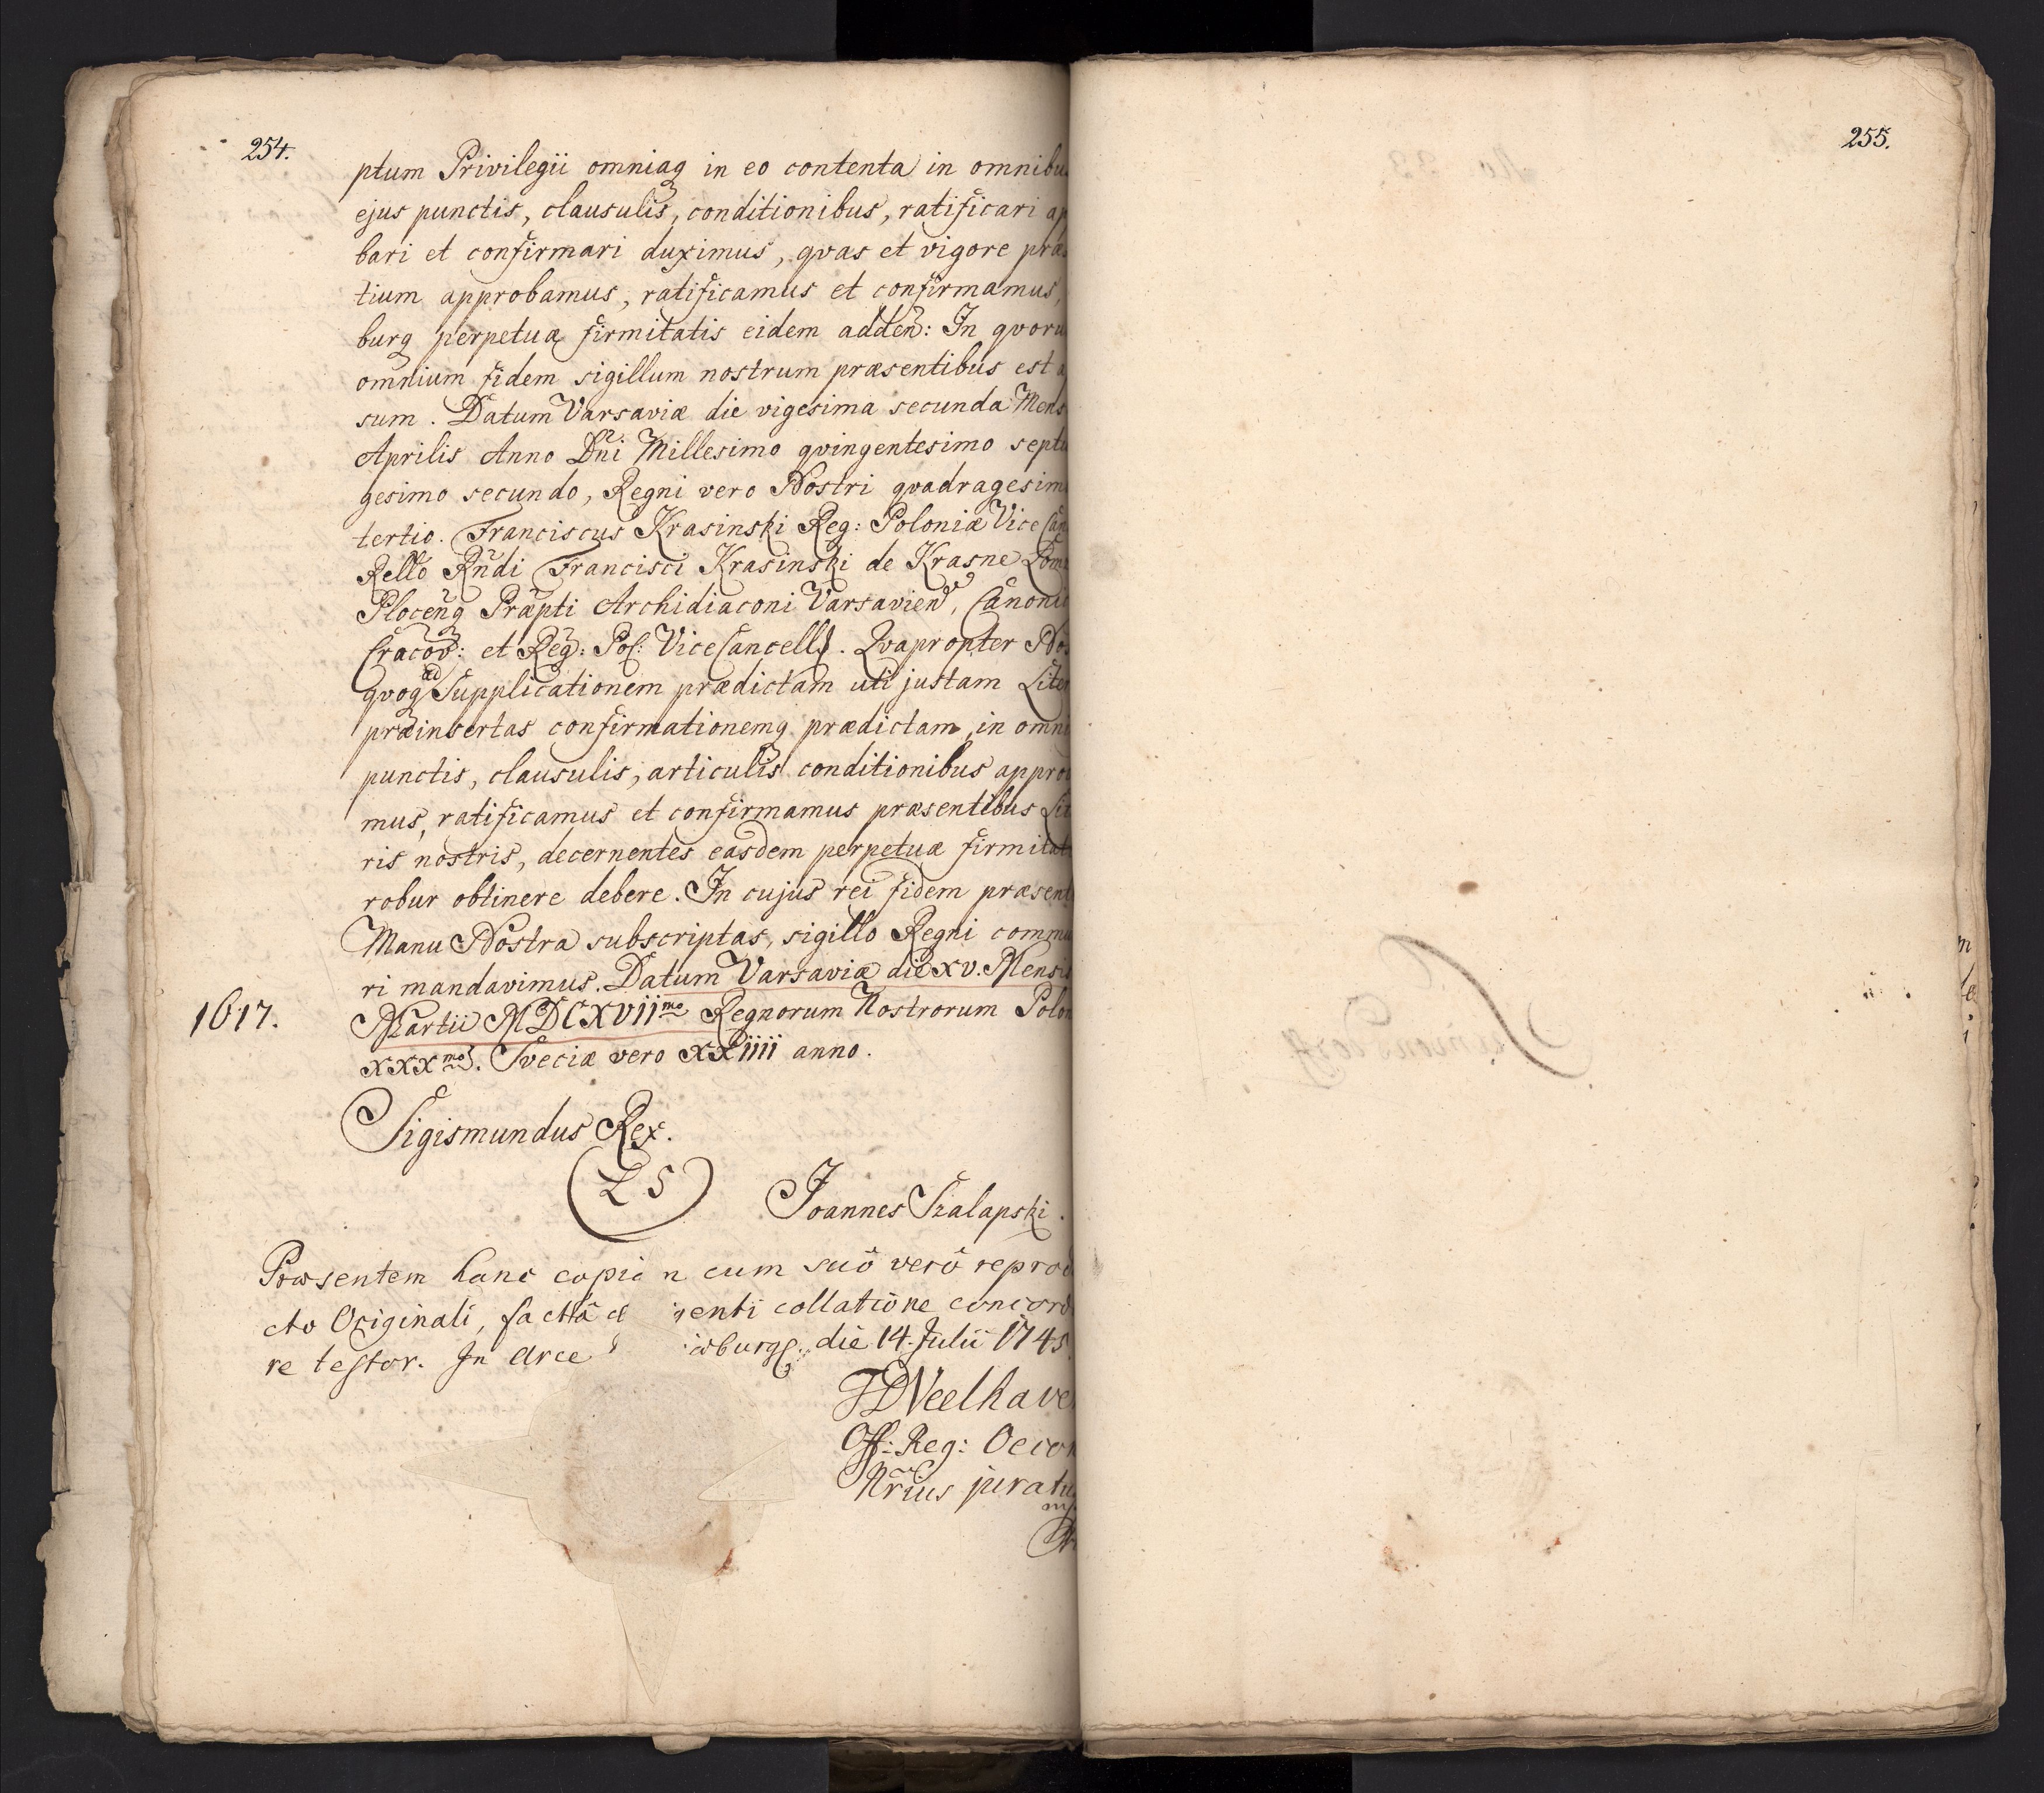 254.
ptum Privilegii omniaq in eo contenta in omnibu
ejus punctis, clausulis, conditionibus, ratificari ap
bari et confirmari duximus, qvas et vigore præs
tium approbamus, ratificamus et confirmamus,
burq perpetuæ firmitatis eidem adden: In qvoru
omnium fidem sigillum nostrum præsentibus est a
sum. Datum Varsaviæ die vigesima secunda Mens
Aprilis Anno Dni Millesimo qvingentesimo septu
gesimo secundo, Regni vero Nostri qvadragesim
tertio. Franciscus Krasinski Reg: Poloniæ Vice Can
Rello Rndi Francisci Krasinski de Krasne
Plocenq Præpti Archidiaconi Varsavien, Canonic
Cracov: et Reg: Pol: ViceCancell. Qvapropter Nos
qvoq ad Supplicationem prædictam uti justam Liter
præinsertas confirmationemq prædictam, in omni
punctis, clausulis, articulis conditionibus approb
mus, ratificamus et confirmamus præsentibus Lit
ris nostris, decernentes easdem perpetuæ firmitat
robur obtinere debere. In cujus rei fidem præsent
Manu Nostra subscriptas, sigillo Regni commu
ri mandavimus. Datum Varsaviæ die XV. Mensis
1617.
Martii MDCXVII mo Regnorum Nostrorum Polon
XXX mo. Sveciæ vero XXIIII anno.
Sigismundus Rex.
L S
Joannes Szalapski.
Præsentem hanc copia n cum suo vero reprod
cto Originali, facta d genti collatione concord
re testor. In Arce burg: die 14. Julii 1745.
Off: Reg: Oecon
Nrius juratu
255.